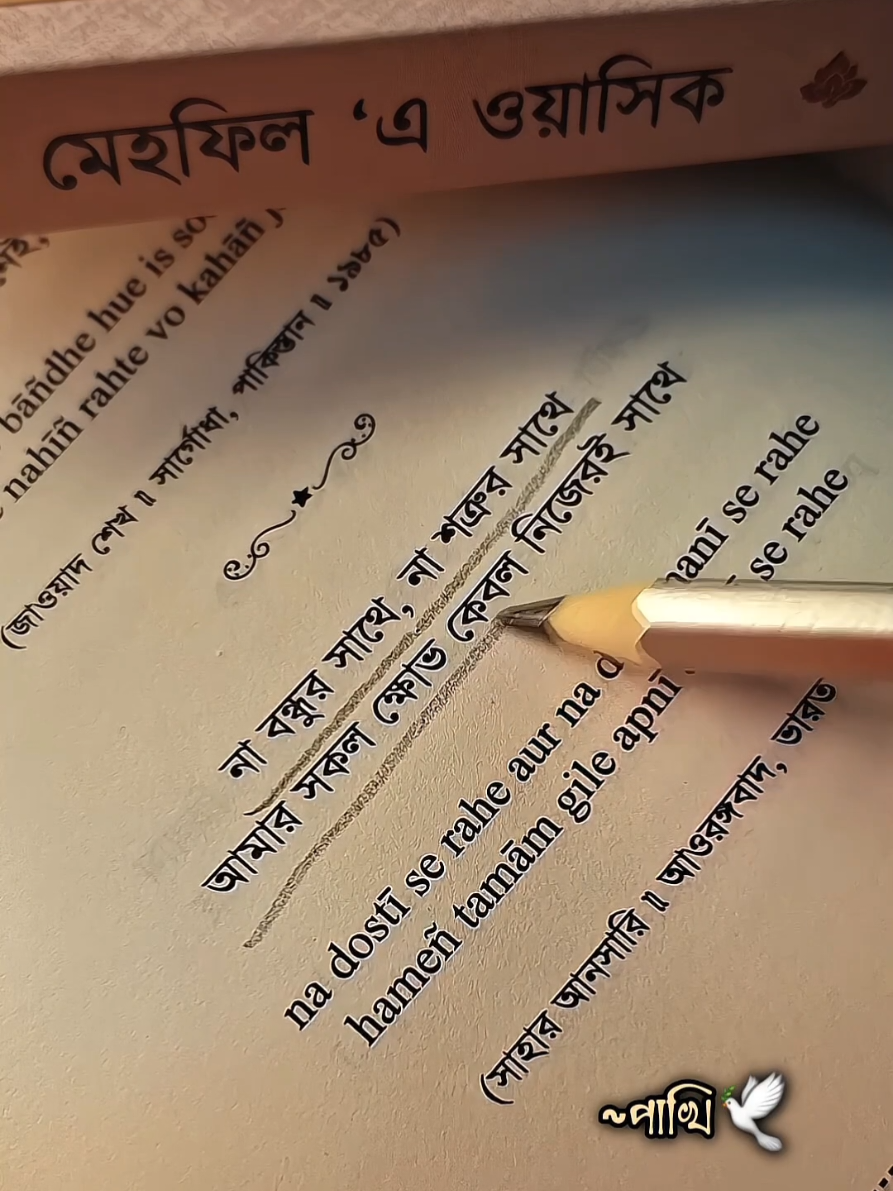 মেহফিল ‘এ ওয়াসিক
bāñdhe hue is
nahīñ rahte vo kahāñ
(জাওয়াদ শেখ ॥ সার্গোধা, পাকিস্তান ॥ ১৯৮৫)
না বন্ধুর সাথে, না শত্রুর সাথে
আমার সকল ক্ষোভ কেবল নিজেরই সাথে
na dostī se rahe aur na se rahe
hameñ tamām gile apnī se rahe
(সাহার আনসারি ॥ আওরঙ্গবাদ, ভারত
~পাখি